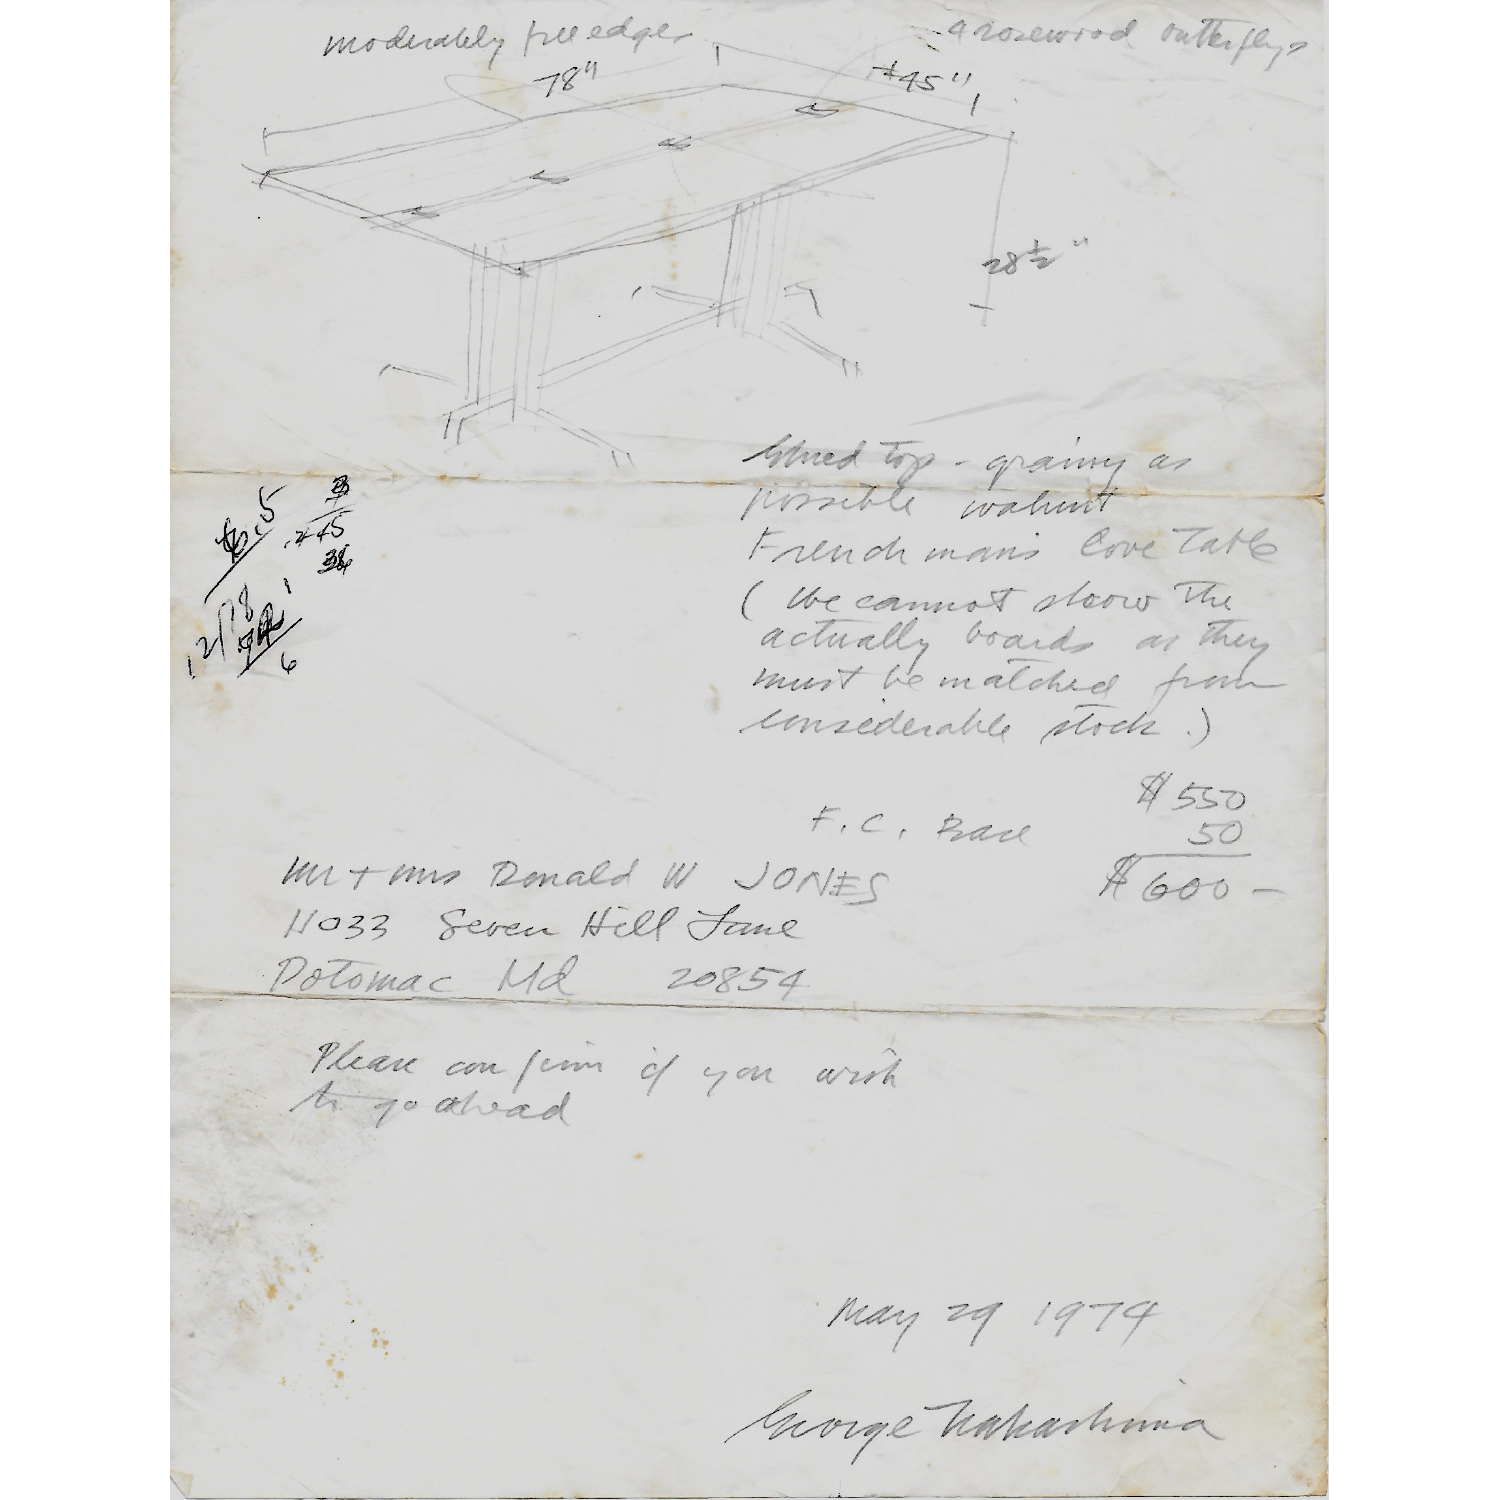 moderately free edges
4 rosewood butterflys
78"
±45"
28½"
Glued top - grainy as
possible walnut
Frenchman's Cove Table
(We cannot show the
actually boards as they
must be matched from
considerable stock.)
$550
F.C. Base 50
$600 –
Mr + Mrs Donald W JONES
11033 Seven Hill Lane
Potomac Md 20854
Please confirm if you wish
to go ahead
May 29 1974
George Nakashima